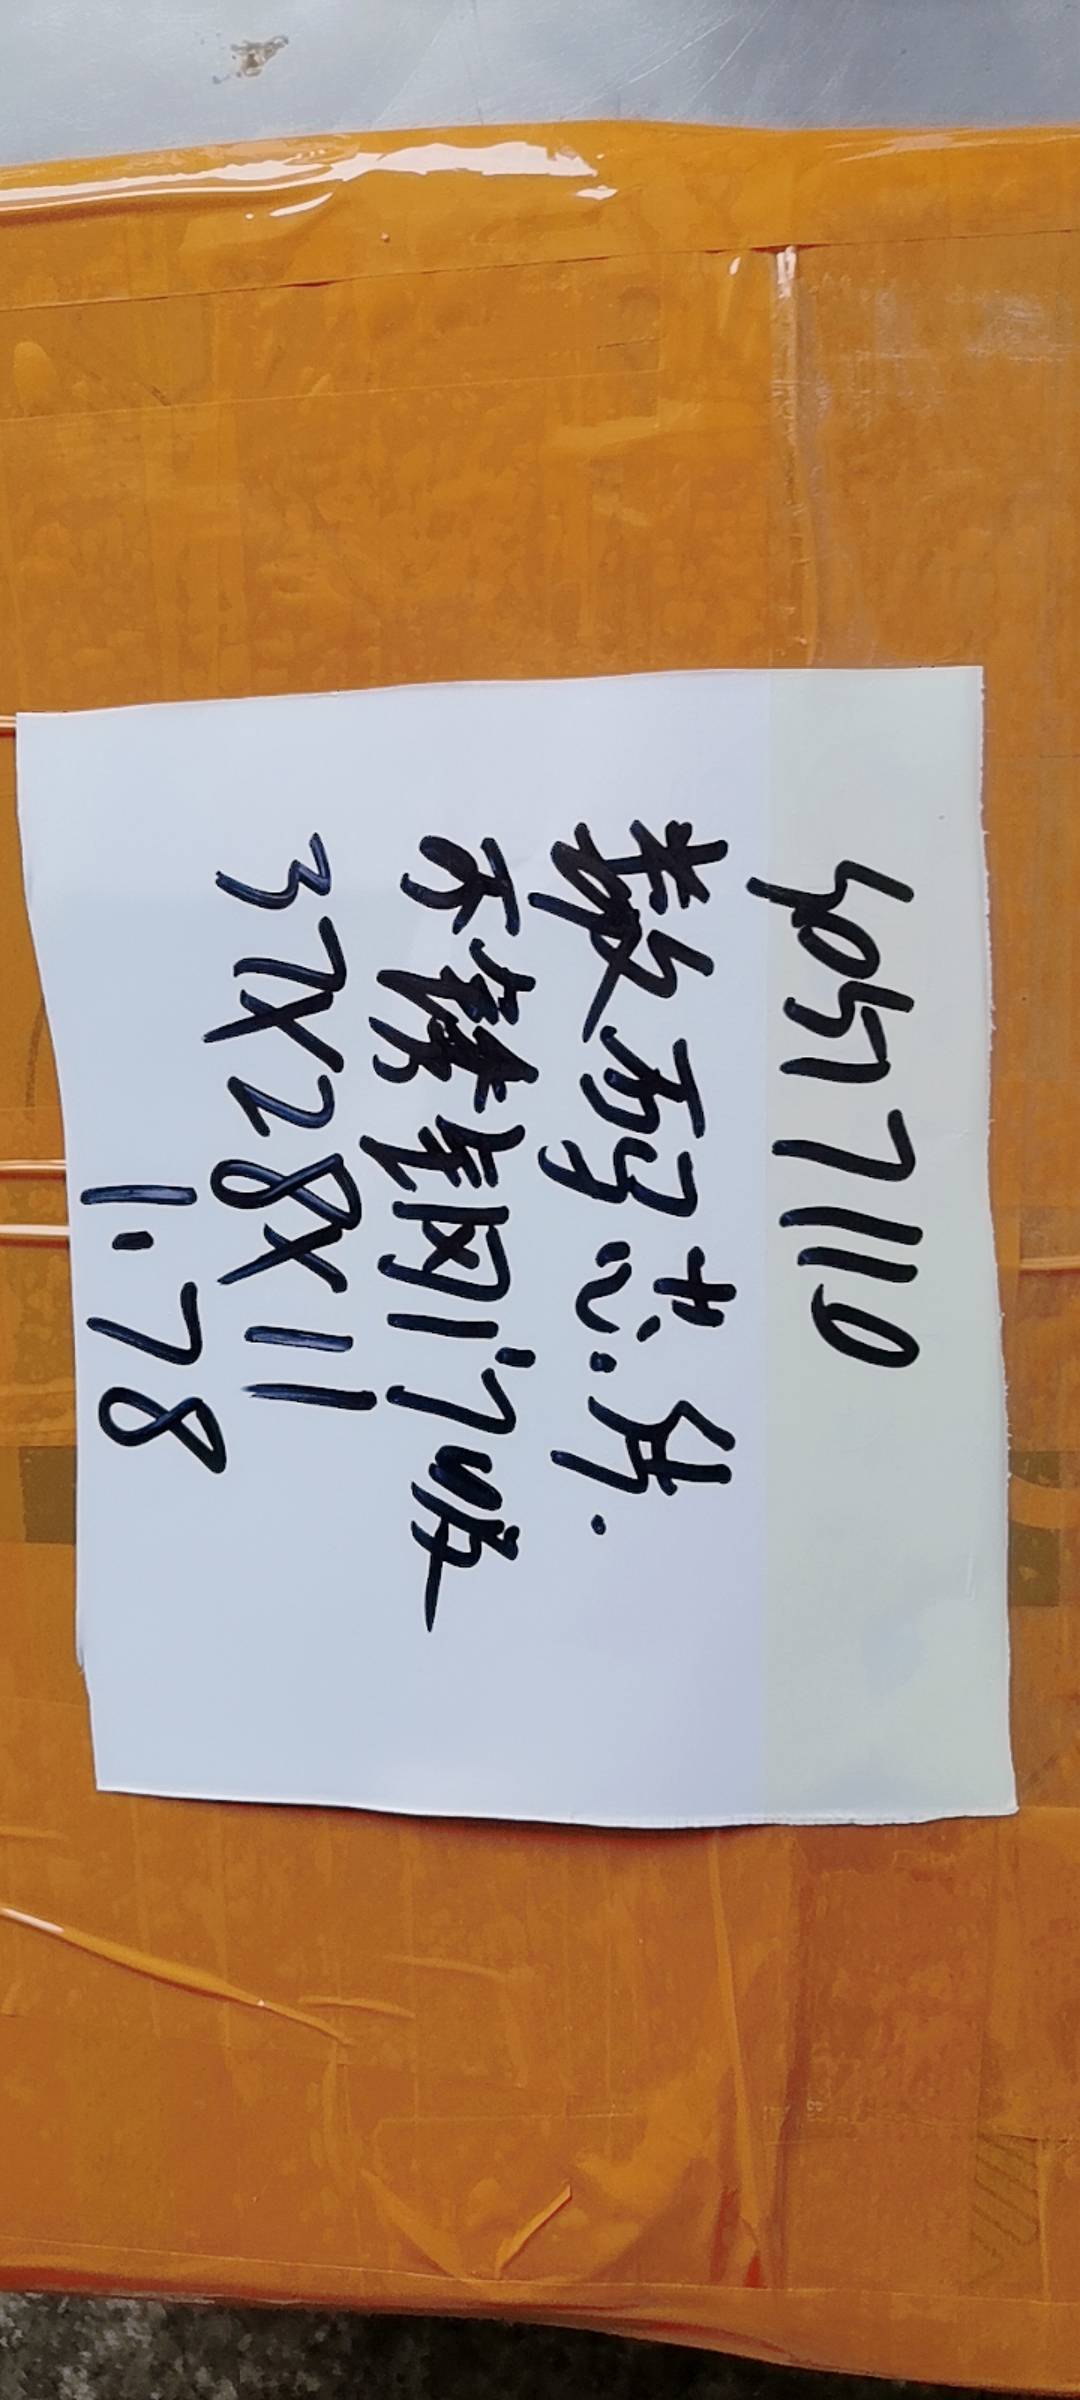 5057110
数码芯片.
不锈钢门吸
37X28X11
1.78